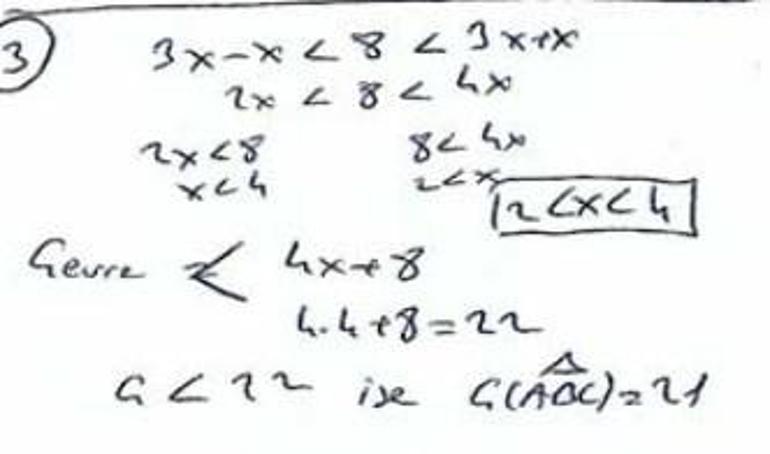 3 3x-x < 8 < 3x+x
2x < 8 < 4x
2x<8 8<4x
x<4 2<x 2<x<4
Çevre < 4x+8
4.4+8=22
Ç < 22 ise Ç(ABC)=21